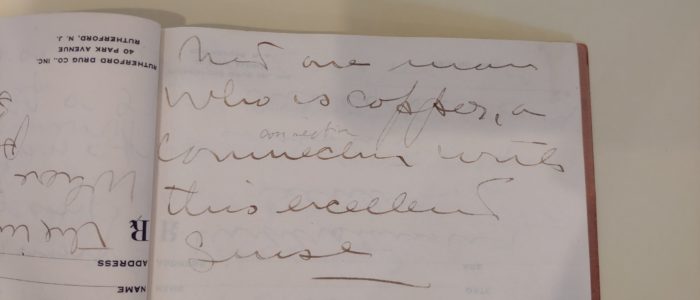 RUTHERFORD DRUG CO., INC.
40 PARK AVENUE
RUTHERFORD, N. J.
Where
NAME
ADDRESS
R
one man
Who is copper, a
connection
Connection with
this excellent
Sense